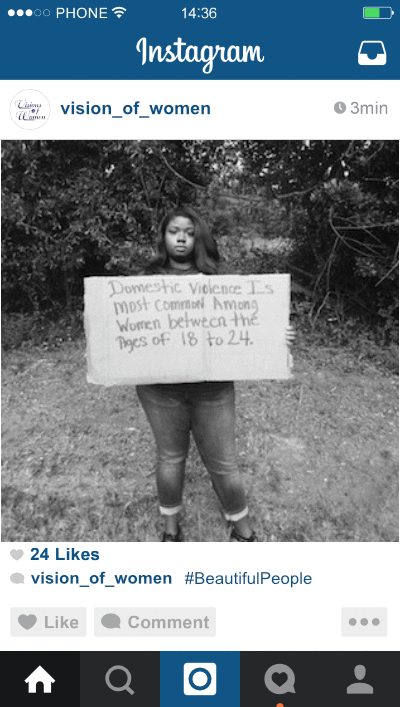 PHONE 14:36
Instagram
Visions
of
Women
vision_of_women 3min
Domestic Violence Is
most Common Among
Women between the
Ages of 18 to 24.
24 Likes
vision_of_women #BeautifulPeople
Like Comment